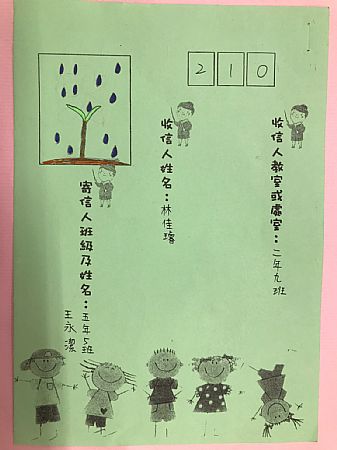 210
收信人教室或處室：二年九班
收信人姓名：林佳璿
寄信人班級及姓名：五年5班
王永潔